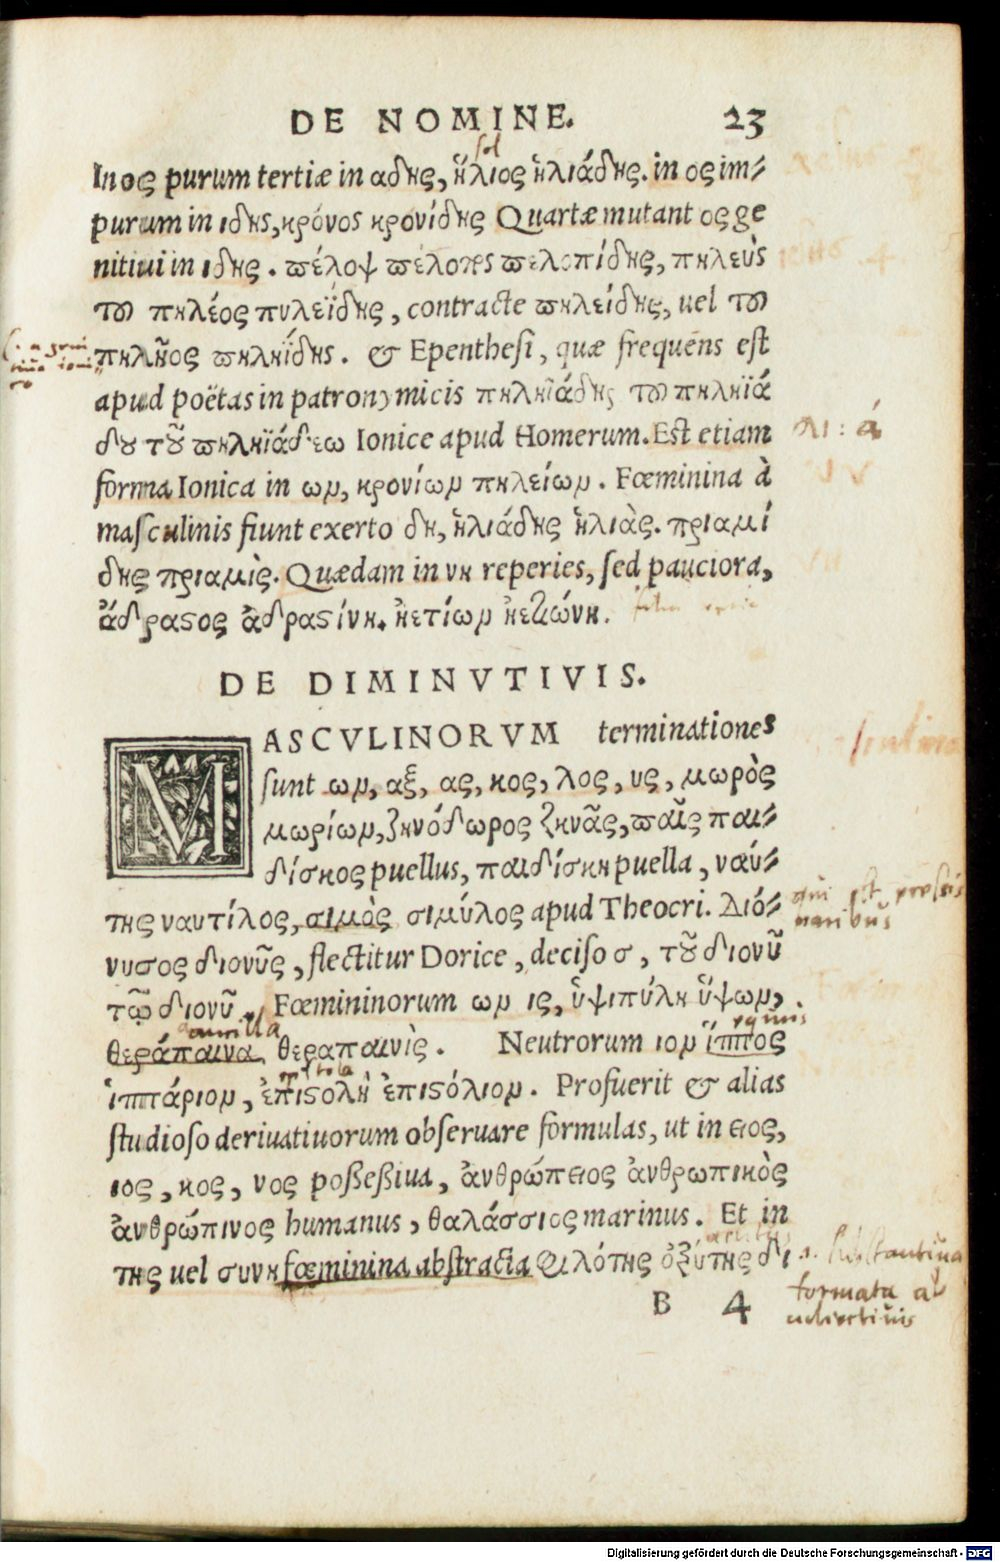 DE NOMINE. 23
sol
In ος purum tertiæ in αδης, ἥλιος ἡλιάδης. in ος im⸗
purum in ιδης, κρόνος κρονίδης Quartæ mutant ος ge
nitiui in ιδης. πέλοψ πέλοπος πελοπίδης, πηλεὺς
τοῦ πηλέος πυλεΐδης, contracte πηλείδης, uel τοῦ
πηλῆος πηληΐδης. & Epenthesi, quæ frequens est
apud poëtas in patronymicis πηληϊάδης τοῦ πηληϊά
δου τοῦ πηληϊάδεω Ionice apud Homerum. Est etiam
forma Ionica in ων, κρονίων πηλείων. Fœminina à
masculinis fiunt exerto δη, ἡλιάδης ἡλιὰς. πριαμί
δης πριαμὶς. Quædam in νη reperies, sed pauciora,
ἄδραστος ἀδραστίνη. ἠετίων ἠετιώνη.
DE DIMINVTIVIS.
MASCVLINORVM terminationes
sunt ων, αξ, ας, κος, λος, υς, μωρὸς
μωρίων, ζηνόδωρος ζηνᾶς, παῖς παι⸗
δίσκος puellus, παιδίσκη puella, ναύ⸗
της ναυτίλος, σιμὸς σιμύλος apud Theocri. Διό⸗
νυσος διονῦς, flectitur Dorice, deciso σ, τοῦ διονῦ
τῷ διονῦ. Fœmininorum ων ις, ὑψιπύλη ὕψων,
θεράπαινα, θεραπαινὶς. Neutrorum ιον ἵππος
ἱππάριον, ἐπιστολὴ ἐπιστόλιον. Profuerit & alias
studioso deriuatiuorum obseruare formulas, ut in ειος,
ιος, κος, νος poßeßiua, ἀνθρώπειος ἀνθρωπικὸς
ἀνθρώπινος humanus, θαλάσσιος marinus. Et in
της uel συνη fœminina abstracta φιλότης ὀξύτης δι
B 4
qui est pressis
naribus
ancilla
equus
epistola
Substantiua
formata ab
adiectiuis
Digitalisierung gefördert durch die Deutsche Forschungsgemeinschaft - DFG